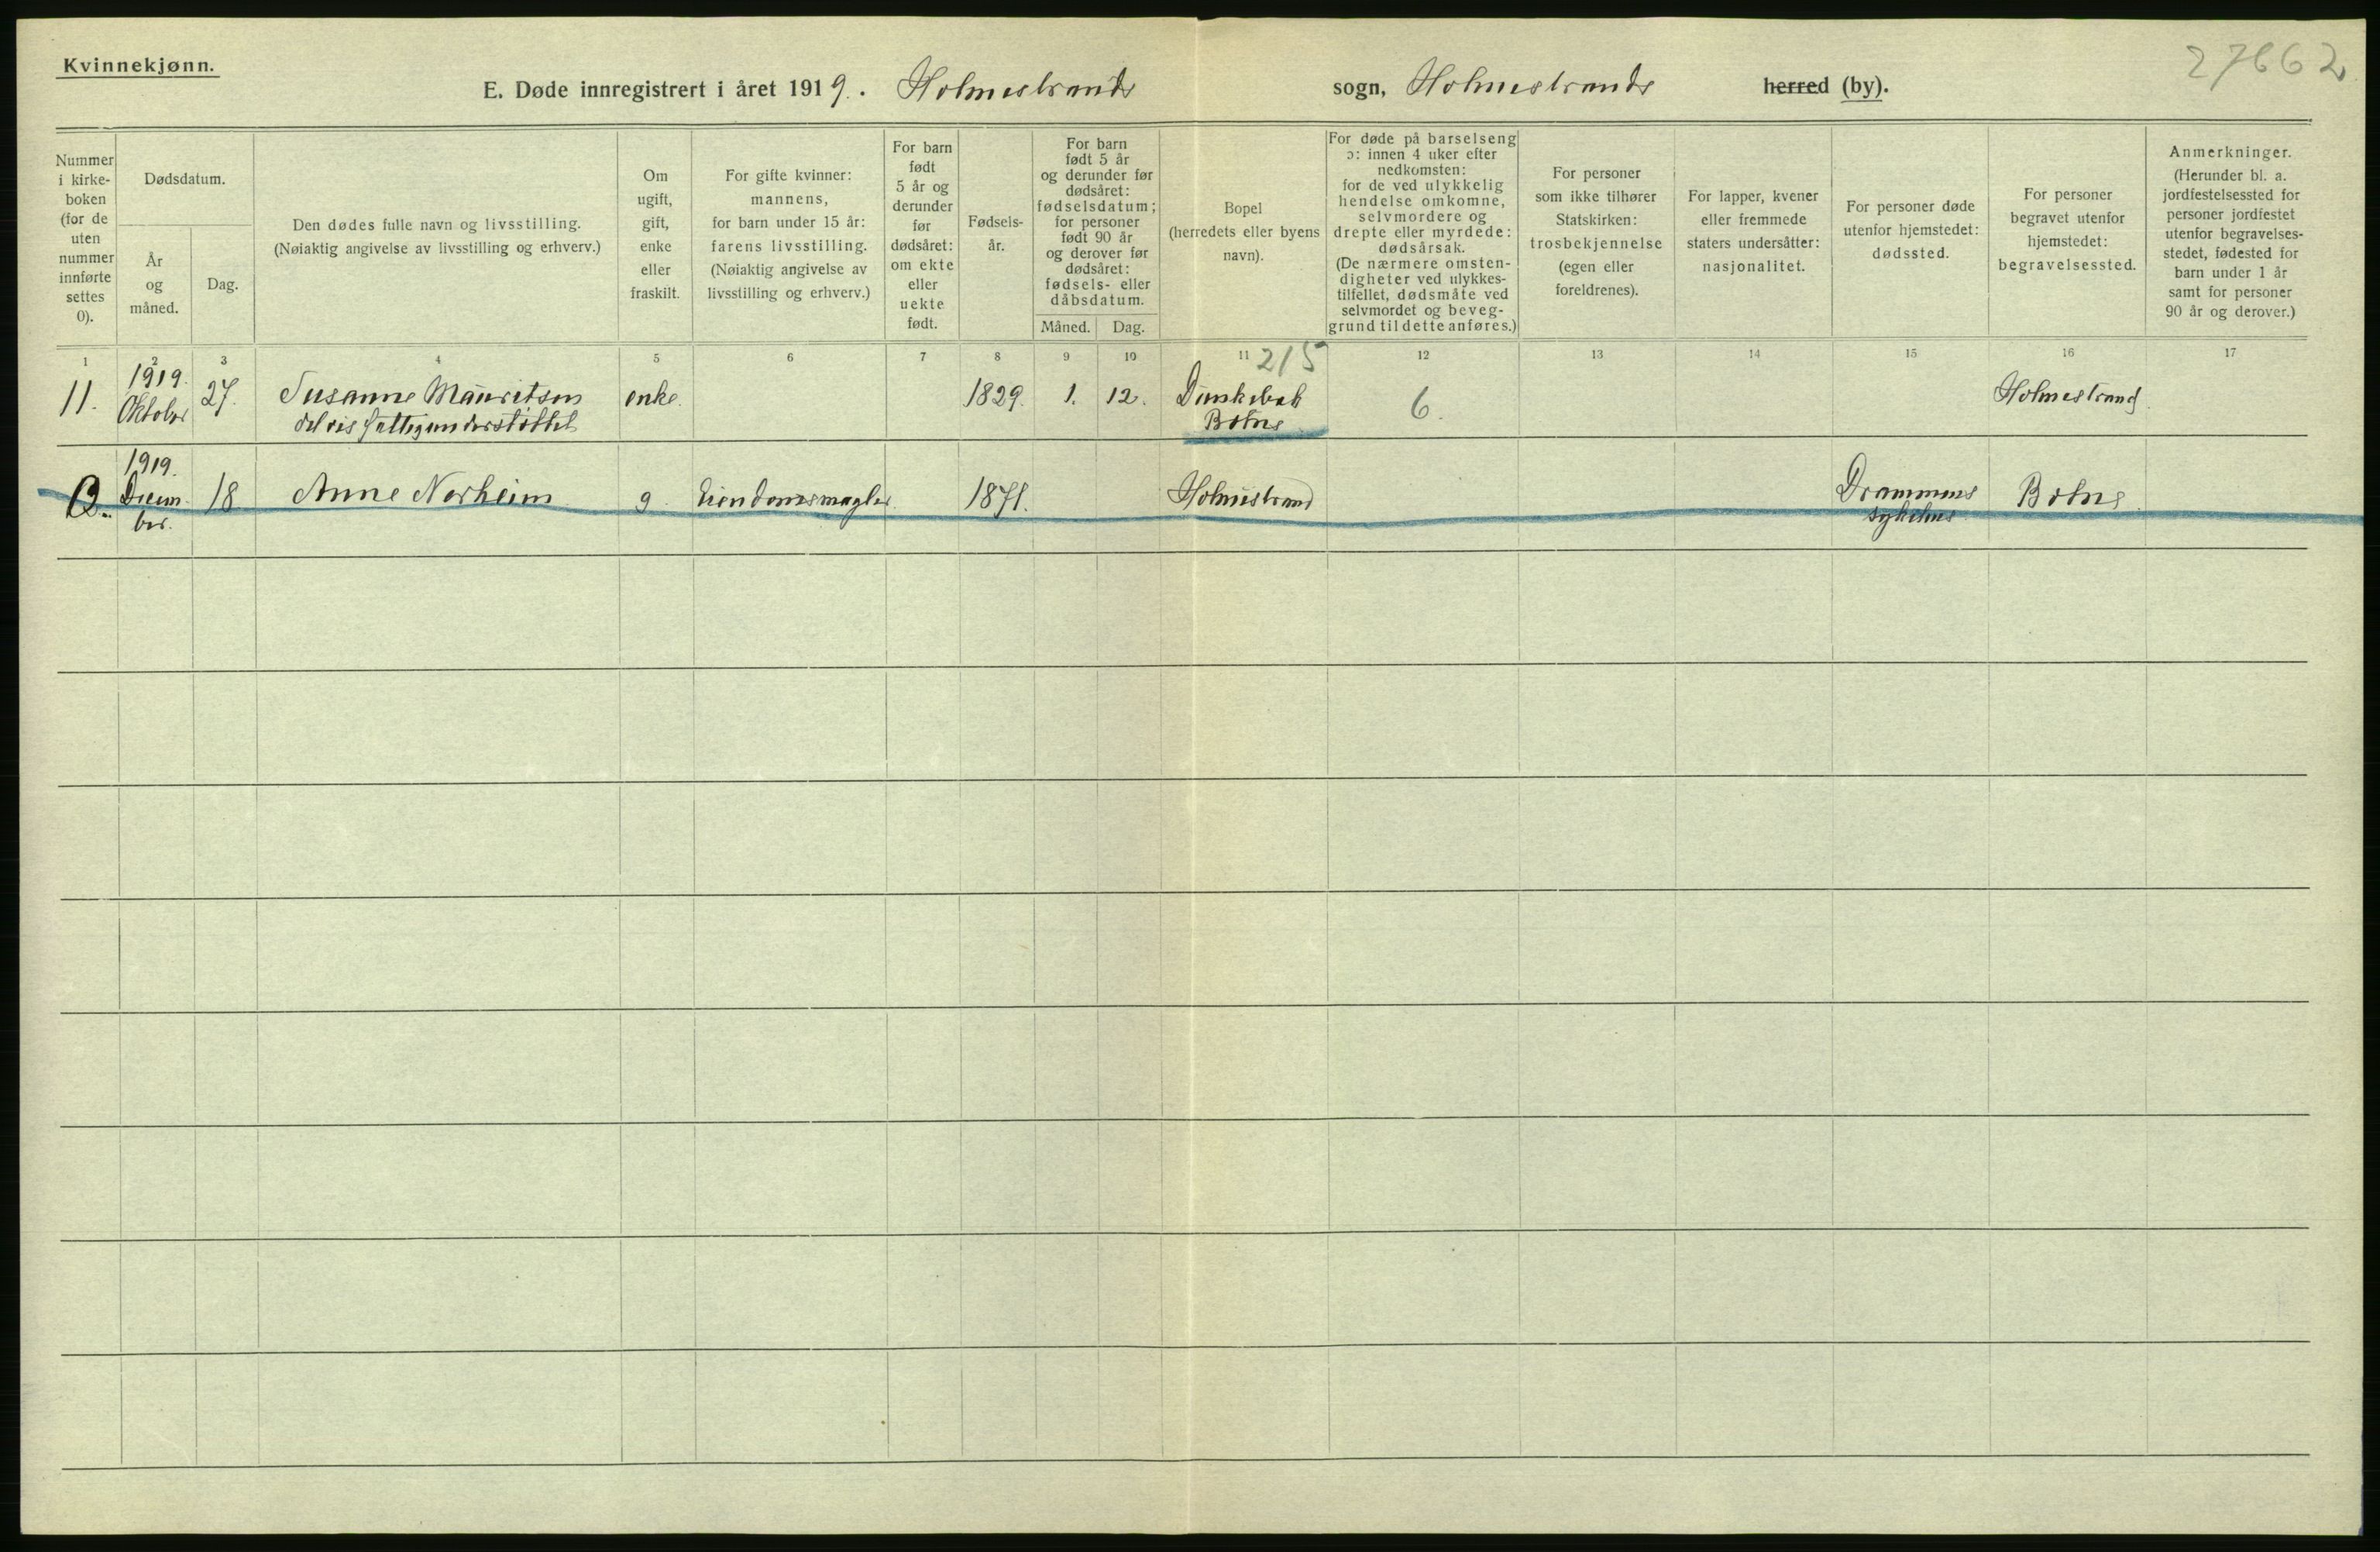 Kvinnekjønn.
27662
E. Døde innregistrert i året 1919. Holmestrands sogn, Holmestrands herred (by).
Nummer
i kirke-
boken
(for de
uten
nummer
innførte
settes
0).
Dødsdatum.
År
og
måned.
Dag.
Den dødes fulle navn og livsstilling.
(Nøiaktig angivelse av livsstilling og erhverv.)
Om
ugift,
gift,
enke
eller
fraskilt.
For gifte kvinner:
mannens,
for barn under 15 år:
farens livsstilling.
(Nøiaktig angivelse av
livsstilling og erhverv.)
For barn
født
5 år og
derunder
før
dødsåret:
om ekte
eller
uekte
født.
Fødsels-
år.
For barn
født 5 år
og derunder før
dødsåret:
fødselsdatum;
for personer
født 90 år
og derover før
dødsåret:
fødsels- eller
dåbsdatum.
Måned. Dag.
Bopel
(herredets eller byens
navn).
For døde på barselseng
ɔ: innen 4 uker efter
nedkomsten:
for de ved ulykkelig
hendelse omkomne,
selvmordere og
drepte eller myrdede:
dødsårsak.
(De nærmere omsten-
digheter ved ulykkes-
tilfellet, dødsmåte ved
selvmordet og beveg-
grund til dette anføres.)
For personer
som ikke tilhører
Statskirken:
trosbekjennelse
(egen eller
foreldrenes).
For lapper, kvener
eller fremmede
staters undersåtter:
nasjonalitet.
For personer døde
utenfor hjemstedet:
dødssted.
For personer
begravet utenfor
hjemstedet:
begravelsessted.
Anmerkninger.
(Herunder bl. a.
jordfestelsessted for
personer jordfestet
utenfor begravelses-
stedet, fødested for
barn under 1 år
samt for personer
90 år og derover.)
1 2 3 4 5 6 7 8 9 10 11 12 13 14 15 16 17
215
11. 1919. Oktober 27. Susanne Mauritsen enke. 1829. 1. 12. 6. Holmestrand
delvis fattigunderstøttet Botne
1919.
0. Decem- 18 Anne Norheim g. Eiendomsmægler. 1871. Holmestrand Drammens Botne
ber. sykehus